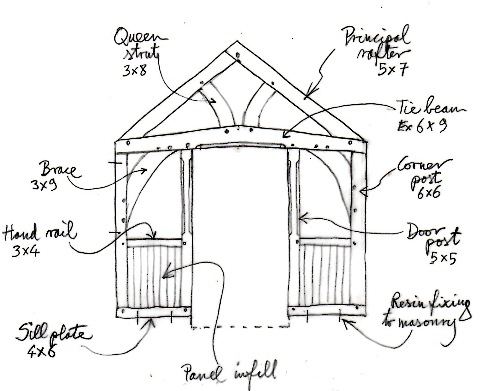 Queen
strut
3x8
Principal
rafter
5x7
Tie beam
6x9
Brace
3x9
Corner
post
6x6
Hand rail
3x4
Door
post
5x5
Sill plate
4x6
Resin fixing
to masonry
Panel infill